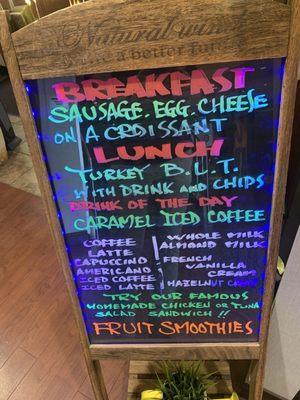 Natural wis
a better fut
BREAKFAST
SAUSAGE. EGG. CHEESE
ON A CROISSANT
LUNCH
TURKEY B.L.T.
WITH DRINK AND CHIPS
DRINK OF THE DAY
CARAMEL ICED COFFEE
COFFEE
LATTE
CAPUCCINO
AMERICANO
ICED COFFEE
ICED LATTE
WHOLE MILK
ALMOND MILK
FRENCH
VANILLA
CREAM
HAZELNUT CREAM
TRY OUR FAMOUS
HOMEMADE CHICKEN OR TUNA
SALAD SANDWICH !!
FRUIT SMOOTHIES